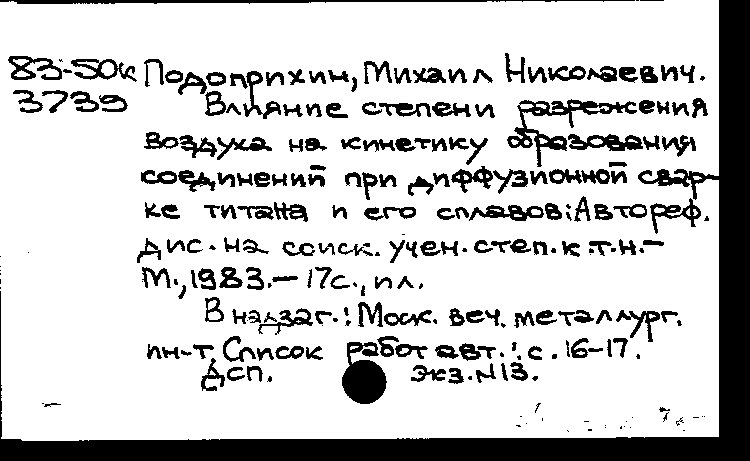 83-50к Подоприхин, Михаил Николаевич.
3739 Влияние степени разрежения
воздуха на кинетику образования
соединений при диффузионной свар-
ке титана и его сплавов: Автореф.
дис. на соиск. учен. степ. к.т.н.-
М., 1983.- 17с., ил.
В надзаг.: Моск. веч. металлург.
ин-т. Список работ авт.: с. 16-17.
Дсп. Экз. N13.